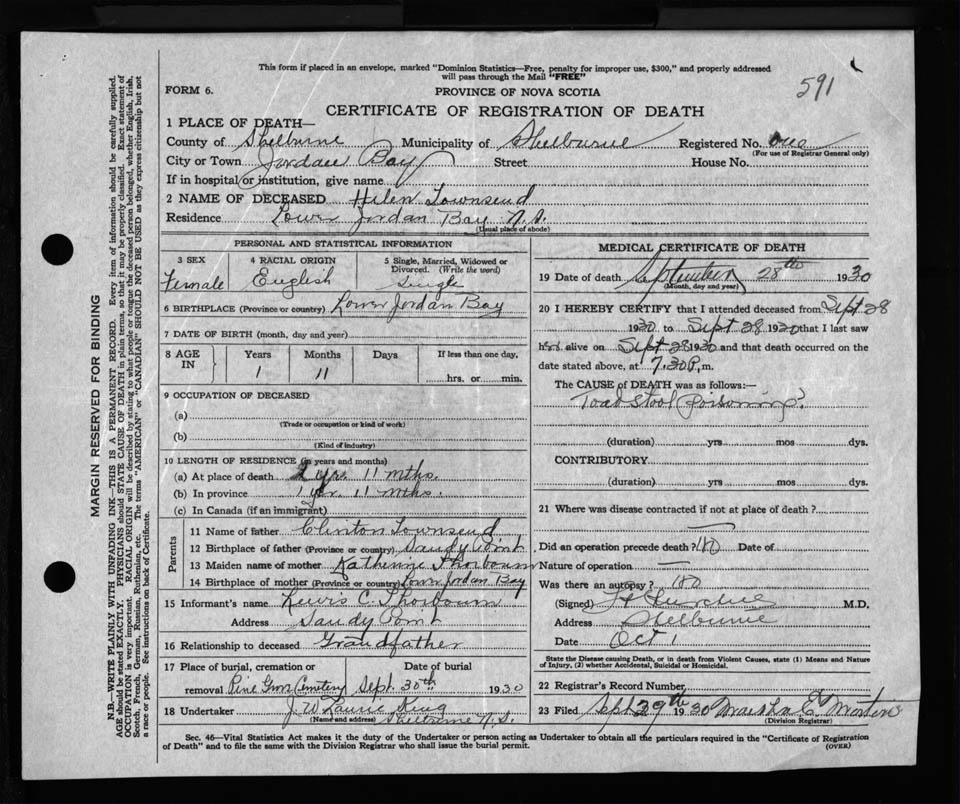 This form if placed in an envelope, marked "Dominion Statistics—Free, penalty for improper use, $300," and properly addressed
will pass through the Mail "FREE"
591
FORM 6.
PROVINCE OF NOVA SCOTIA
CERTIFICATE OF REGISTRATION OF DEATH
1 PLACE OF DEATH—
County of Shelburne Municipality of Shelburne Registered No. one
(For use of Registrar General only)
City or Town Jordan Bay Street House No.
If in hospital or institution, give name
2 NAME OF DECEASED Helen Townsend
Residence Lower Jordan Bay N.S.
(Usual place of abode)
PERSONAL AND STATISTICAL INFORMATION
3 SEX 4 RACIAL ORIGIN 5 Single, Married, Widowed or Divorced. (Write the word)
Female English Single
6 BIRTHPLACE (Province or country) Lower Jordan Bay
7 DATE OF BIRTH (month, day and year)
8 AGE IN Years Months Days If less than one day,
1 11 hrs. or min.
9 OCCUPATION OF DECEASED
(a)
(Trade or occupation or kind of work)
(b)
(Kind of industry)
10 LENGTH OF RESIDENCE (in years and months)
(a) At place of death 1 yr. 11 mths.
(b) In province 1 yr. 11 mths.
(c) In Canada (if an immigrant)
Parents
11 Name of father Clinton Townsend
12 Birthplace of father (Province or country) Sandy Point
13 Maiden name of mother Katherine Thorbourn
14 Birthplace of mother (Province or country) Lower Jordan Bay
15 Informant's name Lewis C. Thorbourn
Address Sandy Point
16 Relationship to deceased Grandfather
17 Place of burial, cremation or removal Date of burial
Pine Grove Cemetery Sept. 30th 1930
18 Undertaker J. W. King
(Name and address) Shelburne N.S.
MEDICAL CERTIFICATE OF DEATH
19 Date of death September 28th 1930
(Month, day and year)
20 I HEREBY CERTIFY that I attended deceased from Sept 28
1930 to Sept 28 1930 that I last saw
her alive on Sept 28 1930 and that death occurred on the
date stated above, at 7.30 P.m.
The CAUSE of DEATH was as follows:—
Toad Stool Poisoning.
(duration) yrs mos dys.
CONTRIBUTORY
(duration) yrs mos dys.
21 Where was disease contracted if not at place of death?
Did an operation precede death? No Date of
Nature of operation —
Was there an autopsy? No
(Signed) M.D.
Address Shelburne
Date Oct 1
State the Disease causing Death, or in death from Violent Causes, state (1) Means and Nature
of Injury, (2) whether Accidental, Suicidal or Homicidal.
22 Registrar's Record Number
23 Filed Sept 29th 1930 E. Masters
(Division Registrar)
Sec. 46—Vital Statistics Act makes it the duty of the Undertaker or person acting as Undertaker to obtain all the particulars required in the "Certificate of Registration
of Death" and to file the same with the Division Registrar who shall issue the burial permit.
(OVER)
MARGIN RESERVED FOR BINDING
N.B.—WRITE PLAINLY WITH UNFADING INK—THIS IS A PERMANENT RECORD. Every item of information should be carefully supplied.
AGE should be stated EXACTLY. PHYSICIANS should STATE CAUSE OF DEATH in plain terms, so that it may be properly classified. Exact statement of
OCCUPATION is very important. RACIAL ORIGIN will be described by stating to what people or tongue the deceased person belonged, whether English, Irish,
Scotch, French, German, Russian, Ruthenian, etc. The terms "AMERICAN" or "CANADIAN" SHOULD NOT BE USED as they express citizenship but not
a race or people. See instructions on back of Certificate.